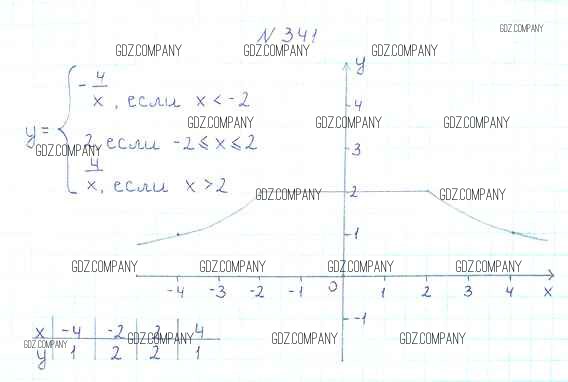 N 341
GDZ.COMPANY
GDZ.COMPANY GDZ.COMPANY GDZ.COMPANY
y
-4/x, если x < -2
4
GDZ.COMPANY GDZ.COMPANY GDZ.COMPANY
y =
2, если -2 ≤ x ≤ 2
3
GDZ.COMPANY
4/x, если x > 2
2
GDZ.COMPANY GDZ.COMPANY
1
GDZ.COMPANY GDZ.COMPANY GDZ.COMPANY GDZ.COMPANY
-4 -3 -2 -1 0 1 2 3 4 x
-1
x -4 -2 2 4
GDZ.COMPANY GDZ.COMPANY GDZ.COMPANY GDZ.COMPANY
y 1 2 2 1